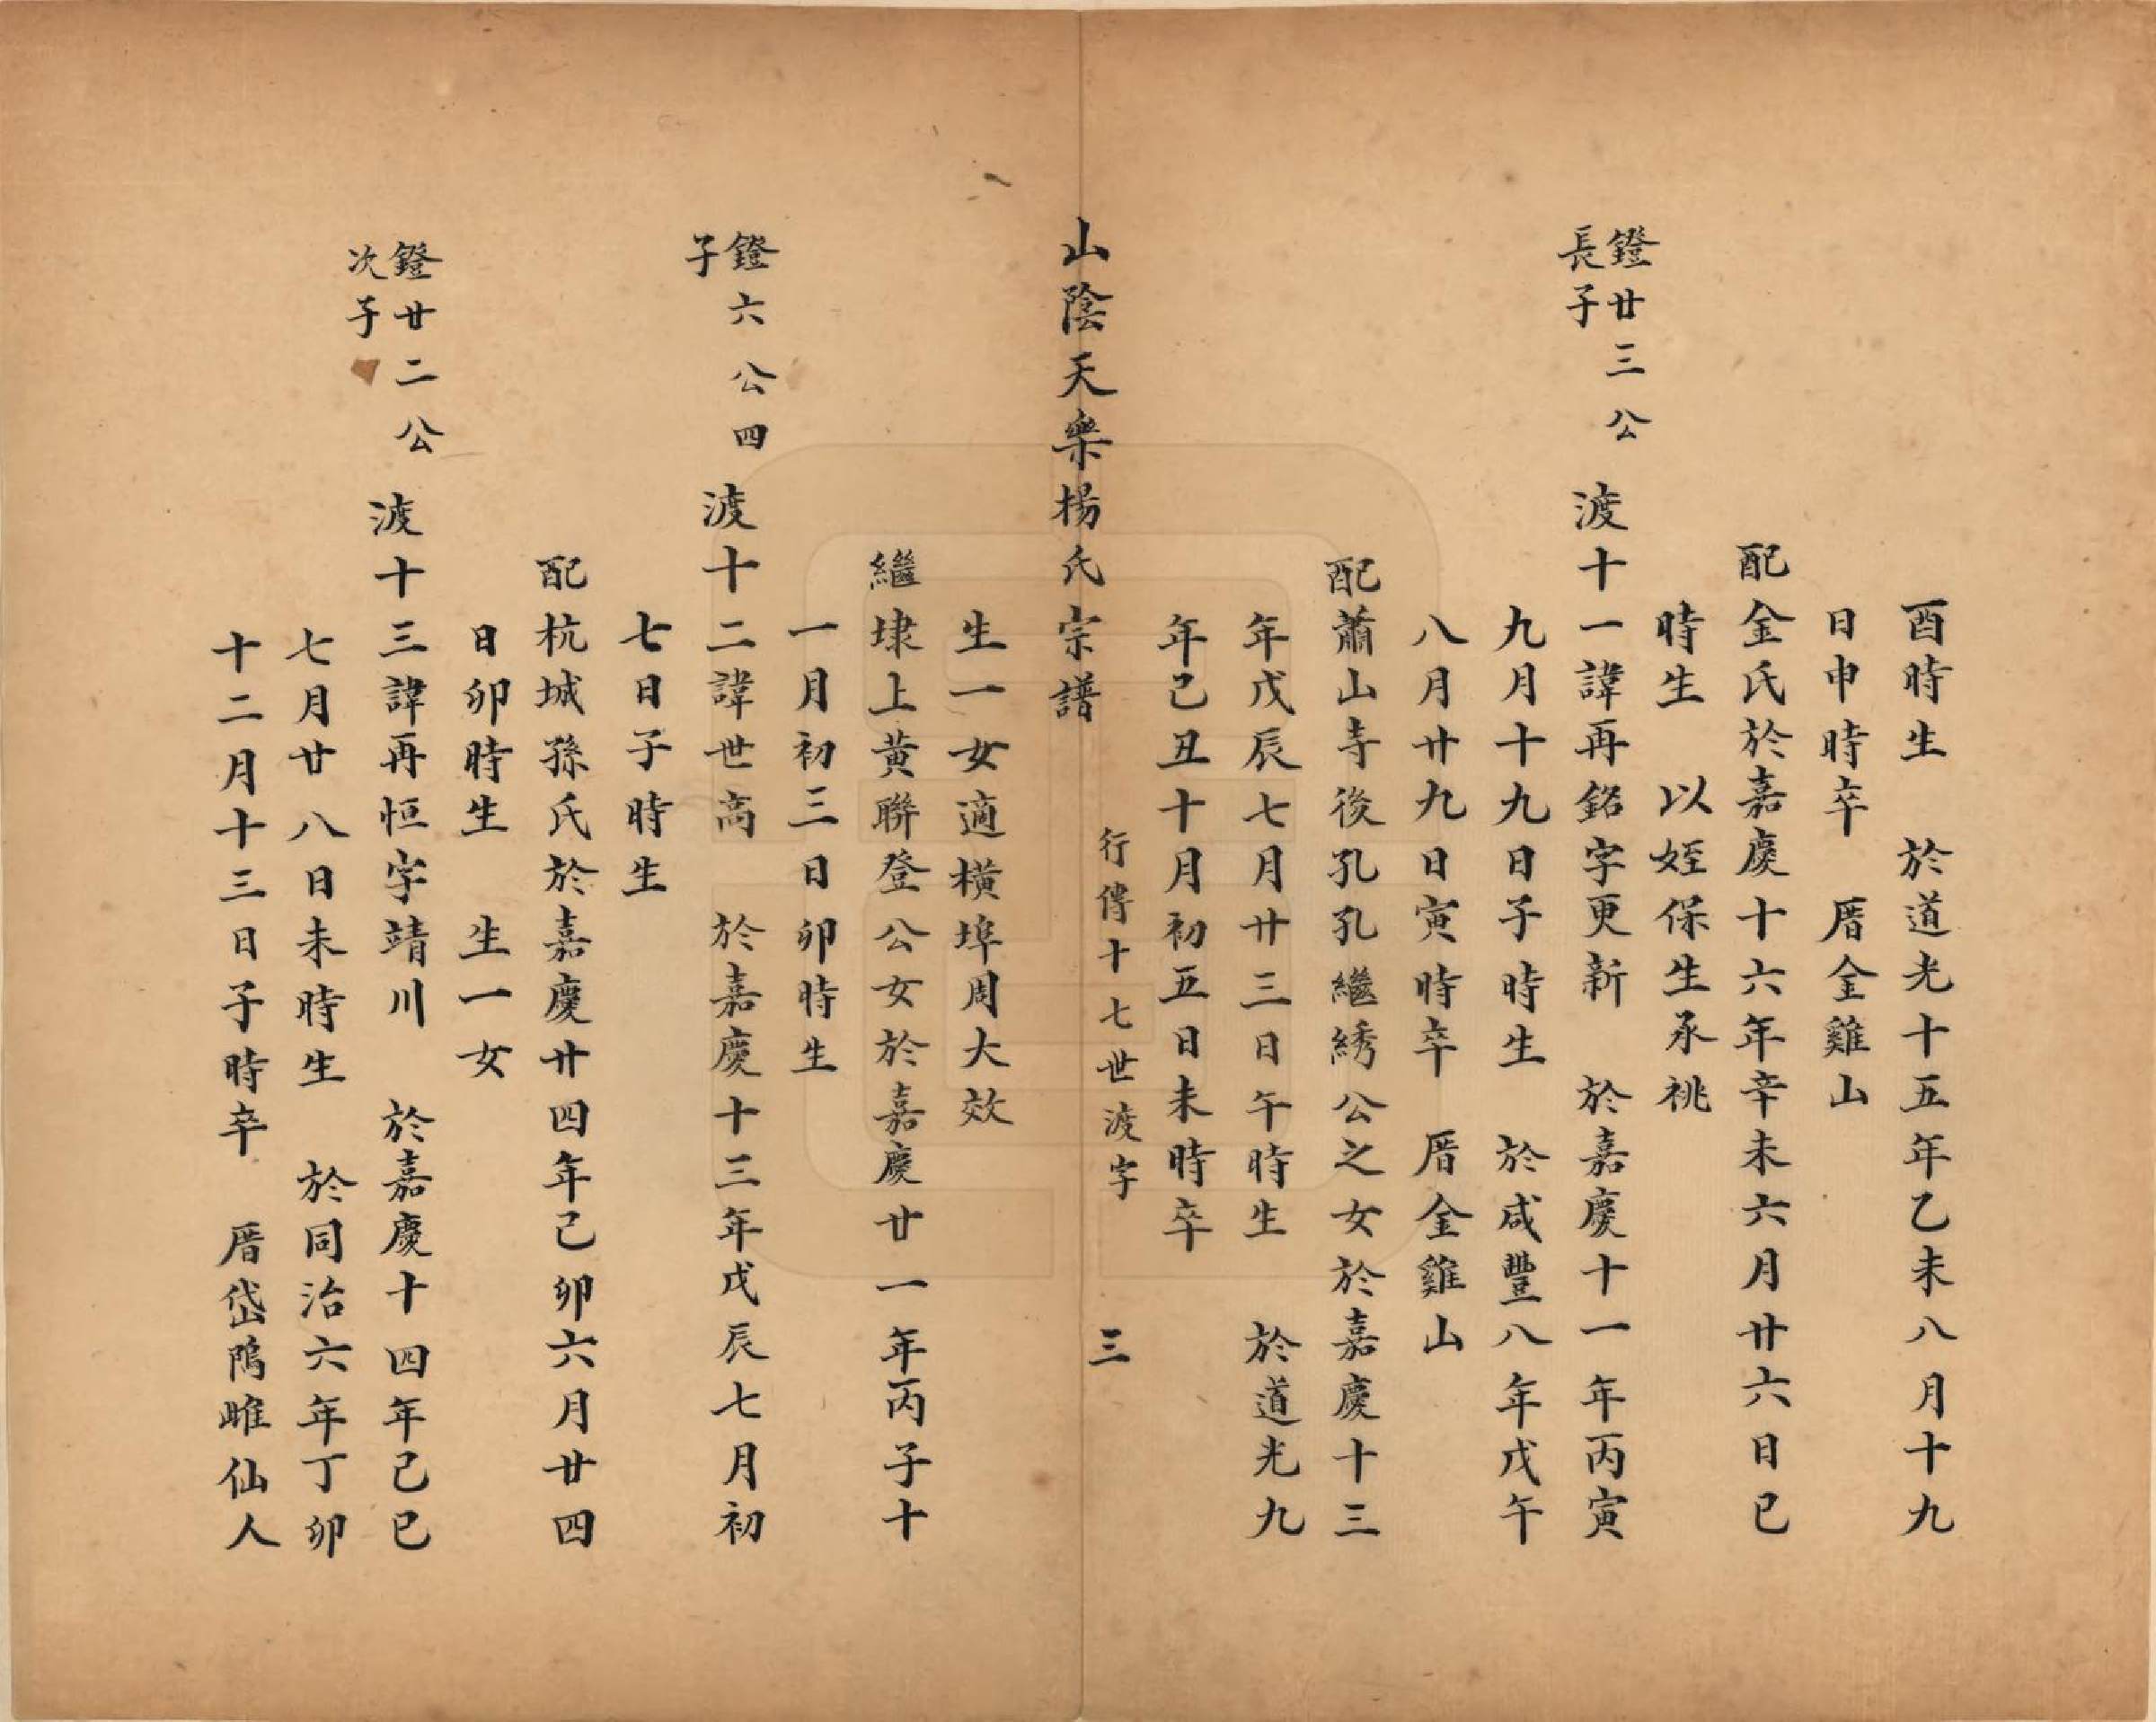 酉時生　於道光十五年乙未八月十九
日申時卒　厝金雞山
配金氏於嘉慶十六年辛未六月廿六日巳
時生　以姪保生承祧
鐙廿三公
長子
渡十一諱再銘字更新　於嘉慶十一年丙寅
九月十九日子時生　於咸豐八年戊午
八月廿九日寅時卒　厝金雞山
配蕭山寺後孔孔繼綉公之女於嘉慶十三
年戊辰七月廿三日午時生　於道光九
年己丑十月初五日未時卒
山陰天樂楊氏宗譜
行傳十七世渡字　三
生一女適橫埠周大效
繼埭上黃聯登公女於嘉慶廿一年丙子十
一月初三日卯時生
鐙六公四
子
渡十二諱世高　於嘉慶十三年戊辰七月初
七日子時生
配杭城孫氏於嘉慶廿四年己卯六月廿四
日卯時生　生一女
鐙廿二公
次子
渡十三諱再恒字靖川　於嘉慶十四年己巳
七月廿八日未時生　於同治六年丁卯
十二月十三日子時卒　厝岱隖雎仙人